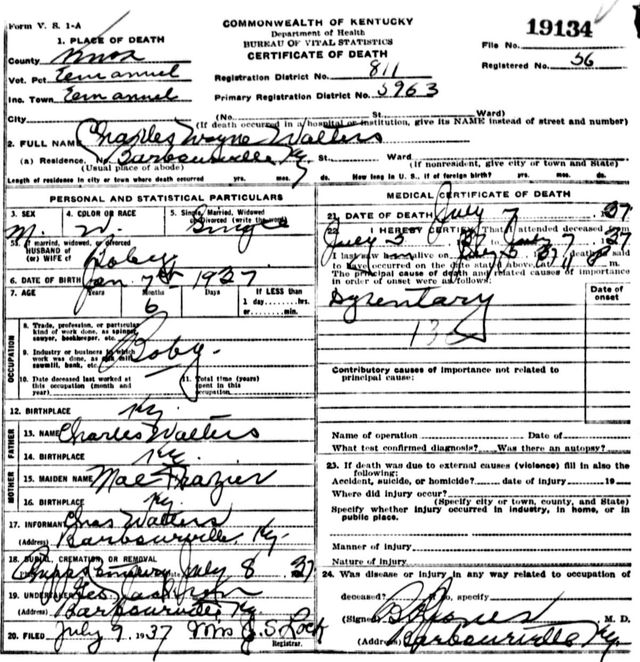 Form V. S. 1-A
COMMONWEALTH OF KENTUCKY
Department of Health
BUREAU OF VITAL STATISTICS
CERTIFICATE OF DEATH
File No. 19134
Registered No. 56
1. PLACE OF DEATH
County Knox
Vot. Pct. Emanuel
Inc. Town Emanuel
Registration District No. 811
Primary Registration District No. 5963
City (No. St. Ward)
(If death occurred in a hospital or institution, give its NAME instead of street and number)
2. FULL NAME Charles Wayne Walters
(a) Residence. No. Barbourville Ky. St. Ward
(Usual place of abode) (If nonresident, give city or town and State)
Length of residence in city or town where death occurred yrs. mos. ds. How long in U. S., if of foreign birth? yrs. mos. ds.
PERSONAL AND STATISTICAL PARTICULARS
3. SEX 4. COLOR OR RACE 5. Single, Married, Widowed
or Divorced (write the word)
M. W. Single
5a. If married, widowed, or divorced
HUSBAND of
(or) WIFE of
6. DATE OF BIRTH Jan 7th 1937
7. AGE Years Months Days If LESS than
6 1 day hrs.
or min.
OCCUPATION
8. Trade, profession, or particular
kind of work done, as spinner,
sawyer, bookkeeper, etc.
9. Industry or business in which
work was done, as silk mill,
sawmill, bank, etc.
10. Date deceased last worked at
this occupation (month and
year)
11. Total time (years)
spent in this
occupation
12. BIRTHPLACE Ky.
FATHER
13. NAME Charles Walters
14. BIRTHPLACE Ky.
MOTHER
15. MAIDEN NAME Mae Frazier
16. BIRTHPLACE Ky.
17. INFORMANT Chas Walters
(Address) Barbourville Ky.
18. BURIAL, CREMATION, OR REMOVAL
July 8 37
19. UNDERTAKER
(Address) Barbourville Ky
20. FILED July 9 1937 Mrs J. S. Lock
Registrar.
MEDICAL CERTIFICATE OF DEATH
21. DATE OF DEATH July 7 37
22. I HEREBY CERTIFY, That I attended deceased from
July 5 37 to July 7 37
I last saw him alive on July 5 37 death is said
to have occurred on the date stated above, at m.
The principal cause of death and related causes of importance
in order of onset were as follows:
Date of
onset
Dysentary
Contributory causes of importance not related to
principal cause:
Name of operation Date of
What test confirmed diagnosis? Was there an autopsy?
23. If death was due to external causes (violence) fill in also the
following:
Accident, suicide, or homicide? date of injury 19
Where did injury occur?
(Specify city or town, county, and State)
Specify whether injury occurred in industry, in home, or in
public place.
Manner of injury
Nature of injury
24. Was disease or injury in any way related to occupation of
deceased? If so, specify
(Signed) Jones M. D.
(Address) Barbourville Ky.